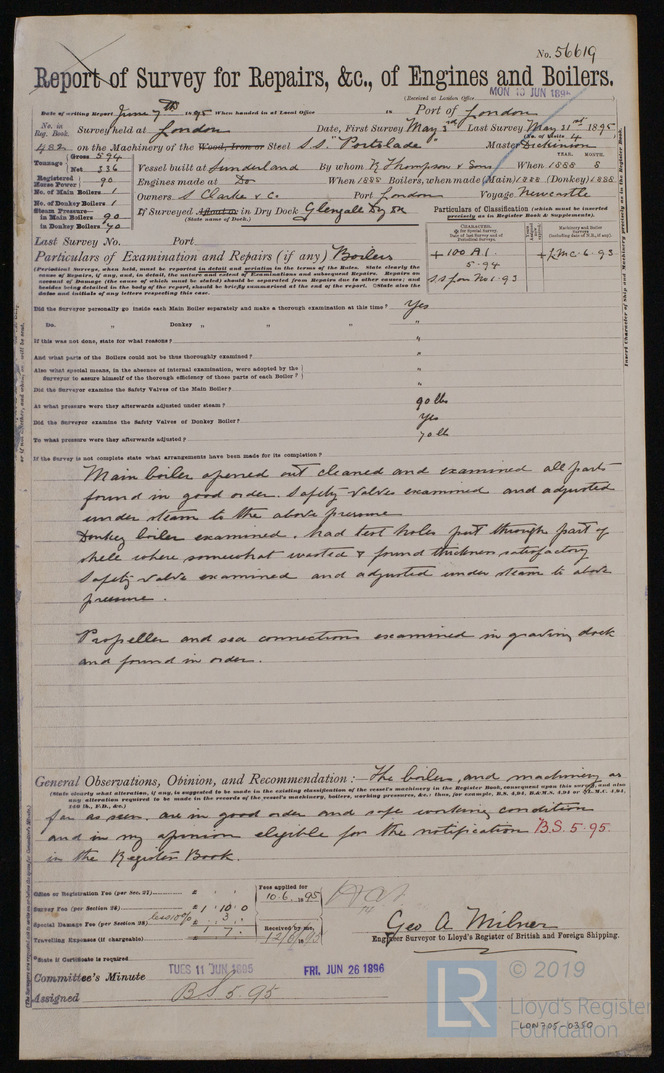 No. 56619
Report of Survey for Repairs, &c., of Engines and Boilers.
(Received at London Office
MON 10 JUN 1895
Date of writing Report June 7th 1895 When handed in at Local Office 18 Port of London
No. in Reg. Book. Survey held at London Date, First Survey May 3rd Last Survey May 31st 1895
482 on the Machinery of the Wood, Iron or Steel S.S. "Portslade" Master Dickinson
Tonnage Gross 594 Net 336
Vessel built at Sunderland By whom R Thompson & Sons When 1888 5
YEAR. MONTH.
Registered Horse Power 90
Engines made at Do When 1888 Boilers, when made (Main) 1888 (Donkey) 1888
No. of Main Boilers 1
No. of Donkey Boilers 1
Owners S Clarke & Co Port London Voyage Newcastle
Steam Pressure— in Main Boilers 90
in Donkey Boilers 70
If Surveyed Afloat or in Dry Dock Glengall Dry Dk
(State name of Dock.)
Particulars of Classification (which must be inserted precisely as in Register Book & Supplements).
Last Survey No. Port
+ 100 A1. +LMC. 6.93
5-94
S.S. Lon No 1-93
Particulars of Examination and Repairs (if any) Boilers
(Periodical Surveys, when held, must be reported in detail and seriatim in the terms of the Rules. State clearly the
cause of Repairs, if any, and, in detail, the nature and extent of Examinations and subsequent Repairs. Repairs on
account of Damage (the cause of which must be stated) should be separated from Repairs due to other causes; and
besides being detailed in the body of the report, should be briefly summarised at the end of the report. State also the
dates and initials of any letters respecting this case.)
Insert Character of Ship and Machinery precisely as in the Register Book.
Did the Surveyor personally go inside each Main Boiler separately and make a thorough examination at this time? Yes
Do. " Donkey " " " "
If this was not done, state for what reasons? "
And what parts of the Boilers could not be thoroughly examined? "
Also what special means, in the absence of internal examination, were adopted by the
Surveyor to assure himself of the thorough efficiency of those parts of each Boiler? "
Did the Surveyor examine the Safety Valves of the Main Boiler? "
At what pressure were they afterwards adjusted under steam? 90 lbs
Did the Surveyor examine the Safety Valves of Donkey Boiler? Yes
To what pressure were they afterwards adjusted? 70 lb
If the Survey is not complete state what arrangements have been made for its completion?
Main boiler opened out cleaned and examined all parts
found in good order. Safety valves examined and adjusted
under steam to the above pressure
Donkey boiler examined, had test holes put through part of
shell where somewhat wasted & found thickness satisfactory
Safety valve examined and adjusted under steam to above
pressure.
Propeller and sea connections examined in graving dock
and found in order.
General Observations, Opinion, and Recommendation :— The boilers, and machinery as
(State clearly what alteration, if any, is suggested to be made in the existing classification of the vessel's machinery in the Register Book, consequent upon this survey, and also
any alteration required to be made in the records of the vessel's machinery, boilers, working pressures, &c.; thus, for example, B.S. 4,94, B.&M.S. 4,94 or L.M.C. 4,94,
140 lb., F.D., &c.)
far as seen, are in good order and safe working condition
and in my opinion eligible for the notification B.S. 5.95.
in the Register Book.
Office or Registration Fee (per Sec. 27) £ : :
Survey Fee (per Section 28) £ 1 : 10 : 0
Special Damage Fee (per Section 28) less 10% £ : 3 :
1 7
Travelling Expenses (if chargeable)
Fees applied for
10.6.1895
Received by me,
Geo A Milner
Engineer Surveyor to Lloyd's Register of British and Foreign Shipping.
State if Certificate is required
Committee's Minute TUES 11 JUN 1895 FRI. JUN 26 1896
Assigned BS 5.95
LR © 2019
Lloyd's Register
Foundation
LON705-0350